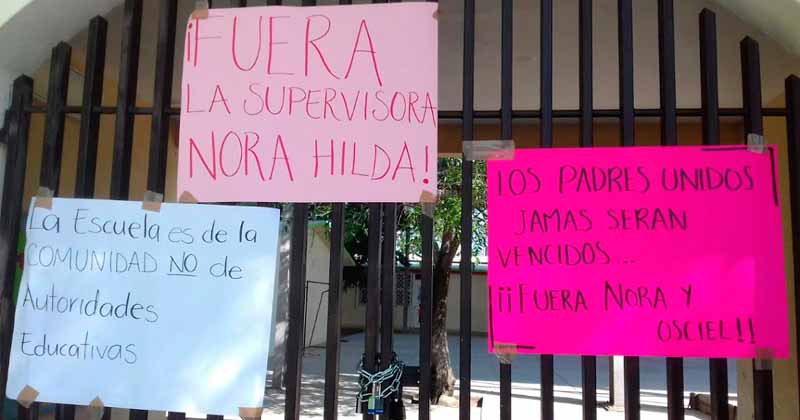 ¡FUERA
LA SUPERVISORA
NORA HILDA!
La Escuela es de la
COMUNIDAD NO de
Autoridades
Educativas
LOS PADRES UNIDOS
JAMAS SERAN
VENCIDOS...
¡¡FUERA NORA Y
OSCIEL!!